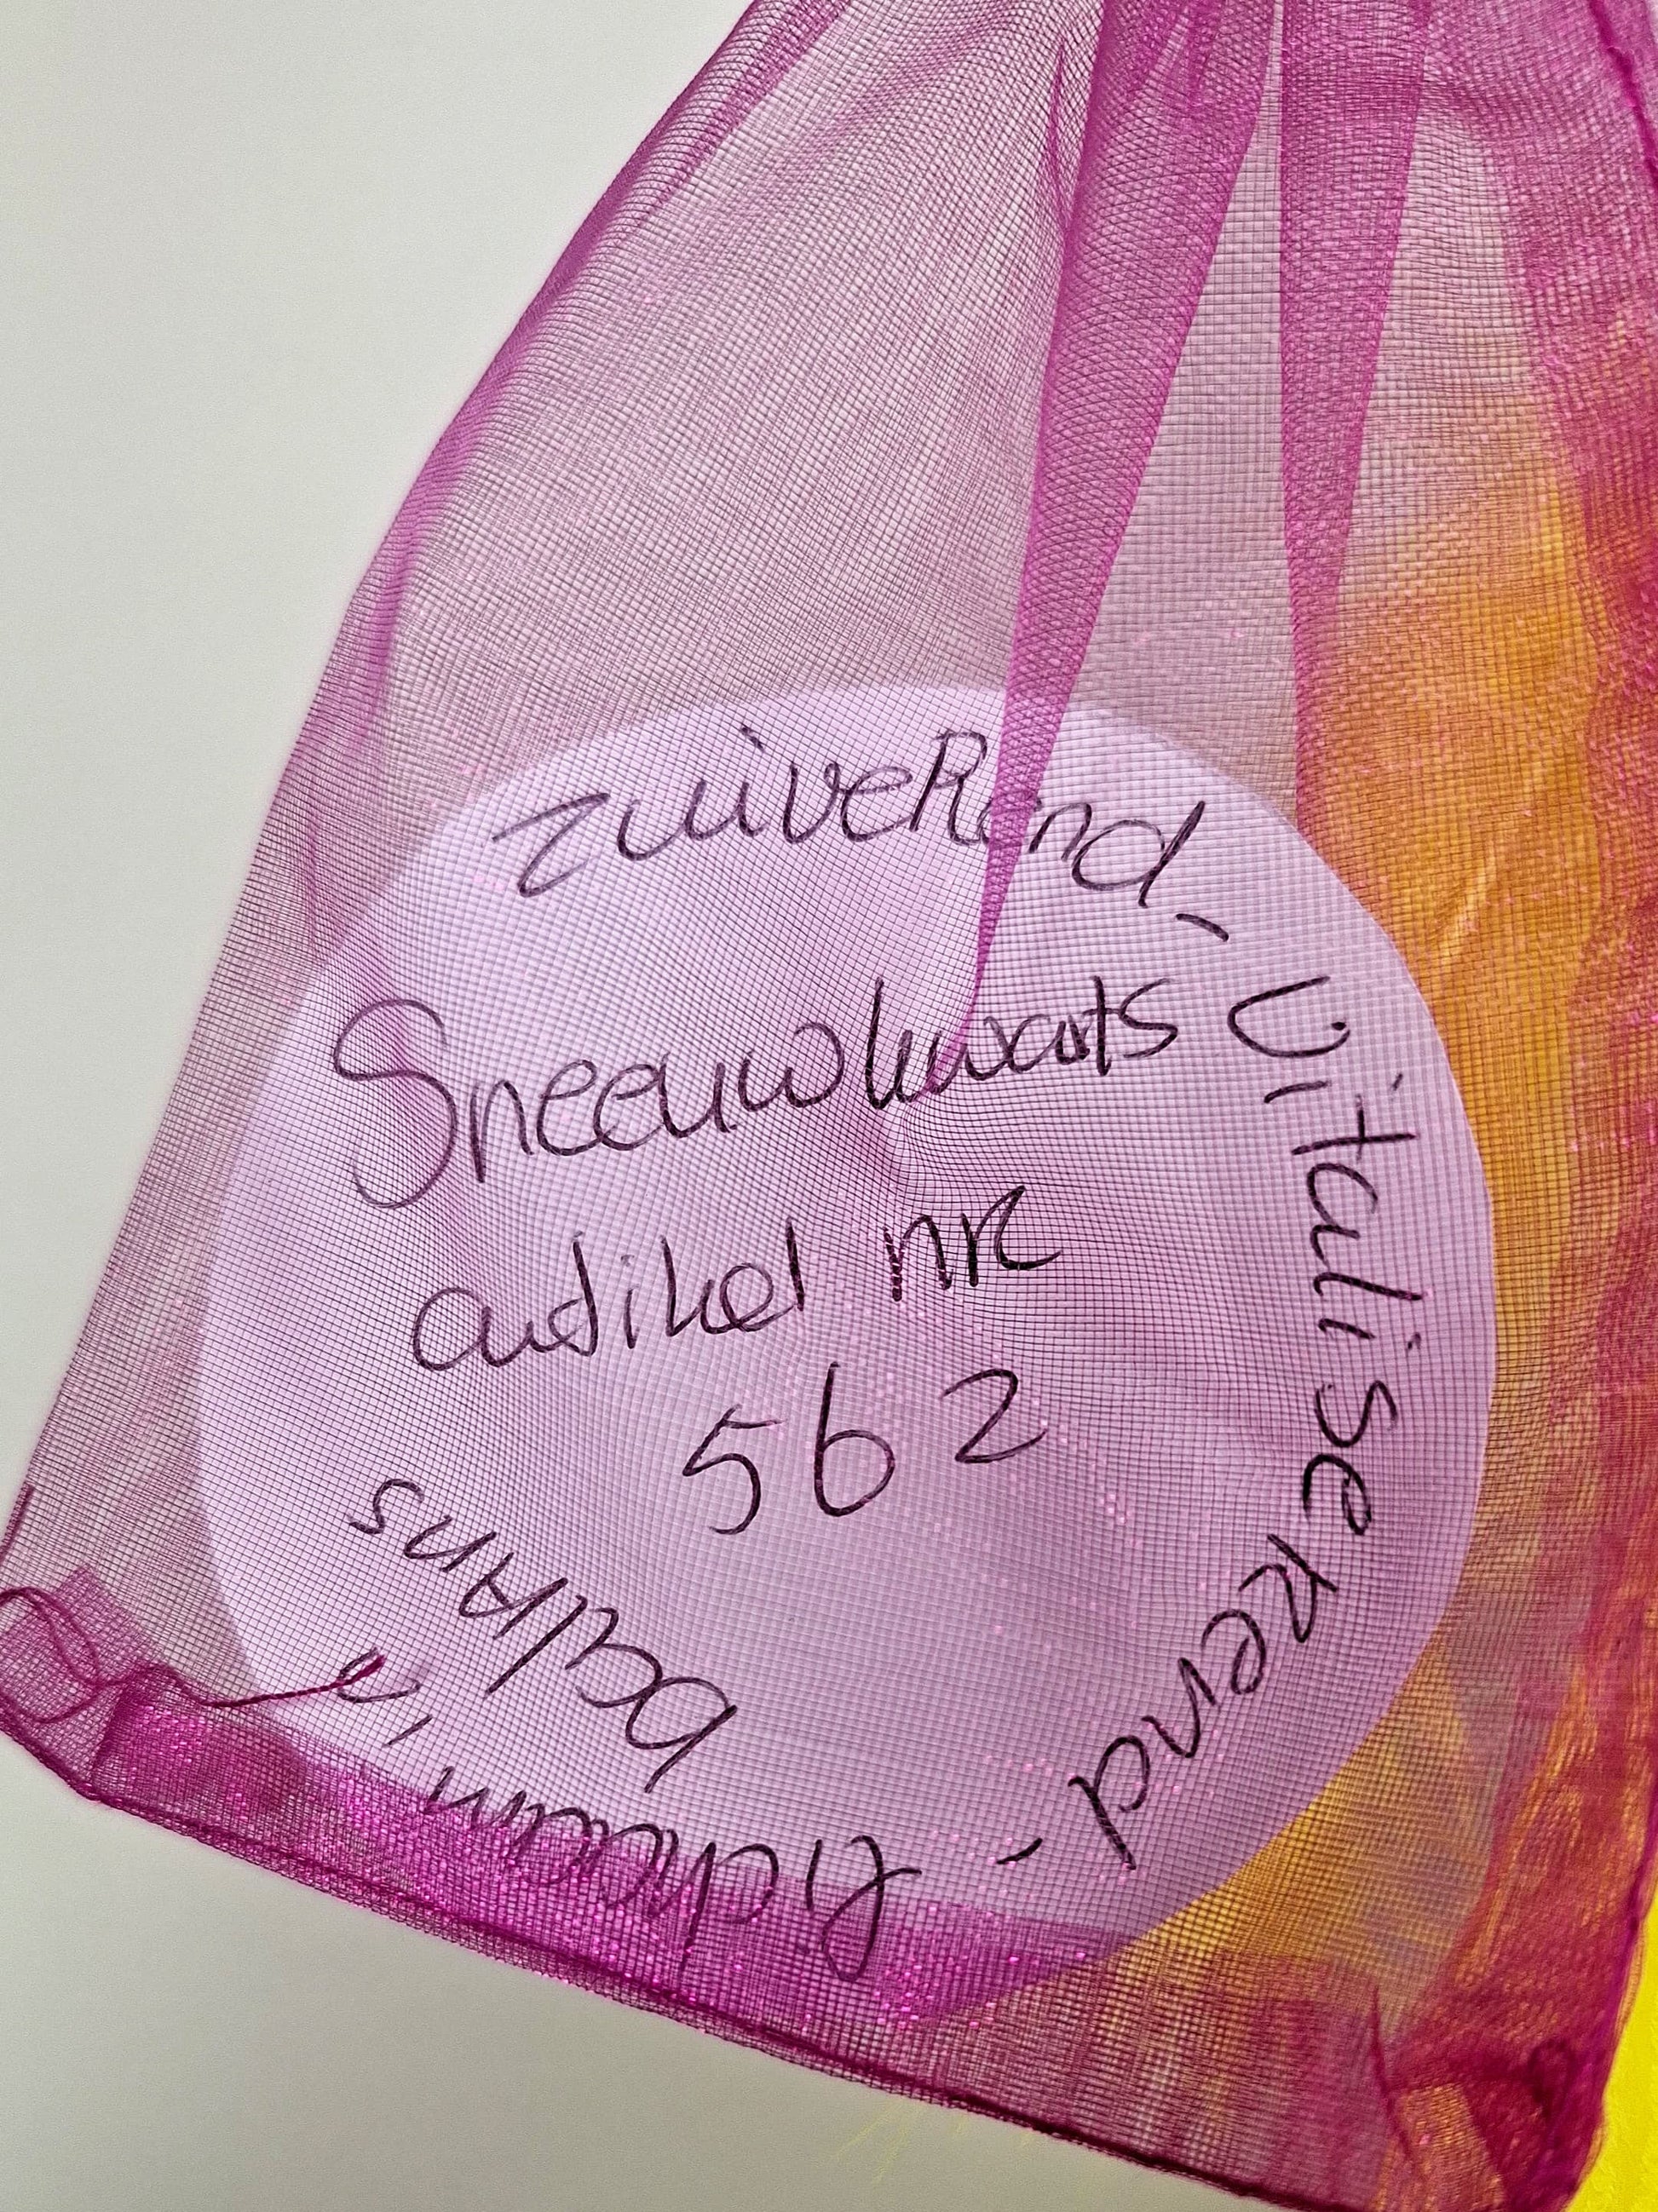 zuiveRend - Vitaliserend - lichaam in
balans
Sneeuwkwarts
artikel nr
562